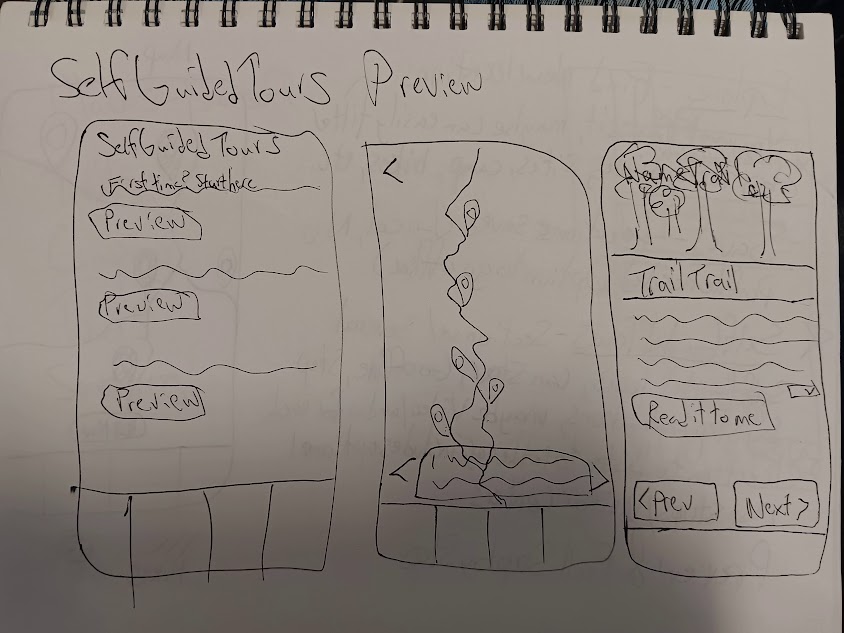 Self Guided Tours Preview
Self Guided Tours
First time? Start here
Preview
Preview
Preview
<
<
>
Name
Trail Trail
Read it to me
< Prev
Next >